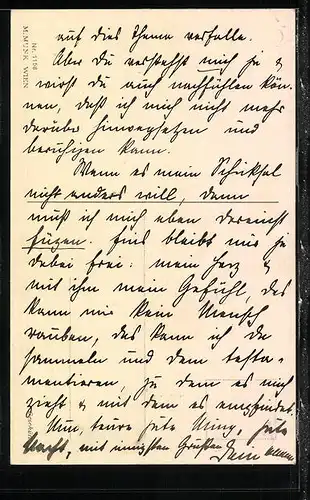 auf dies Thema verfalle.
Aber Du verstehst mich ja &
wirst Du auch nachfühlen kön-
nen, daß ich mich nicht mehr
darüber hinwegsetzen und
beruhigen kann.
Wenn es mein Schicksal
nicht anders will, dann
muß ich mich eben darein
fügen. Eins bleibt mir ja
dabei frei: mein Herz &
mit ihm mein Gefühl, das
kann mir kein Mensch
rauben, das kann ich da
sammeln und dem testa-
mentieren, zu dem es mich
zieht & mit dem es empfindet.
Nun, teure gute Mizzy, gute
Nacht, mit innigsten Grüßen Dein
Nr. 1156
M. MUNK WIEN